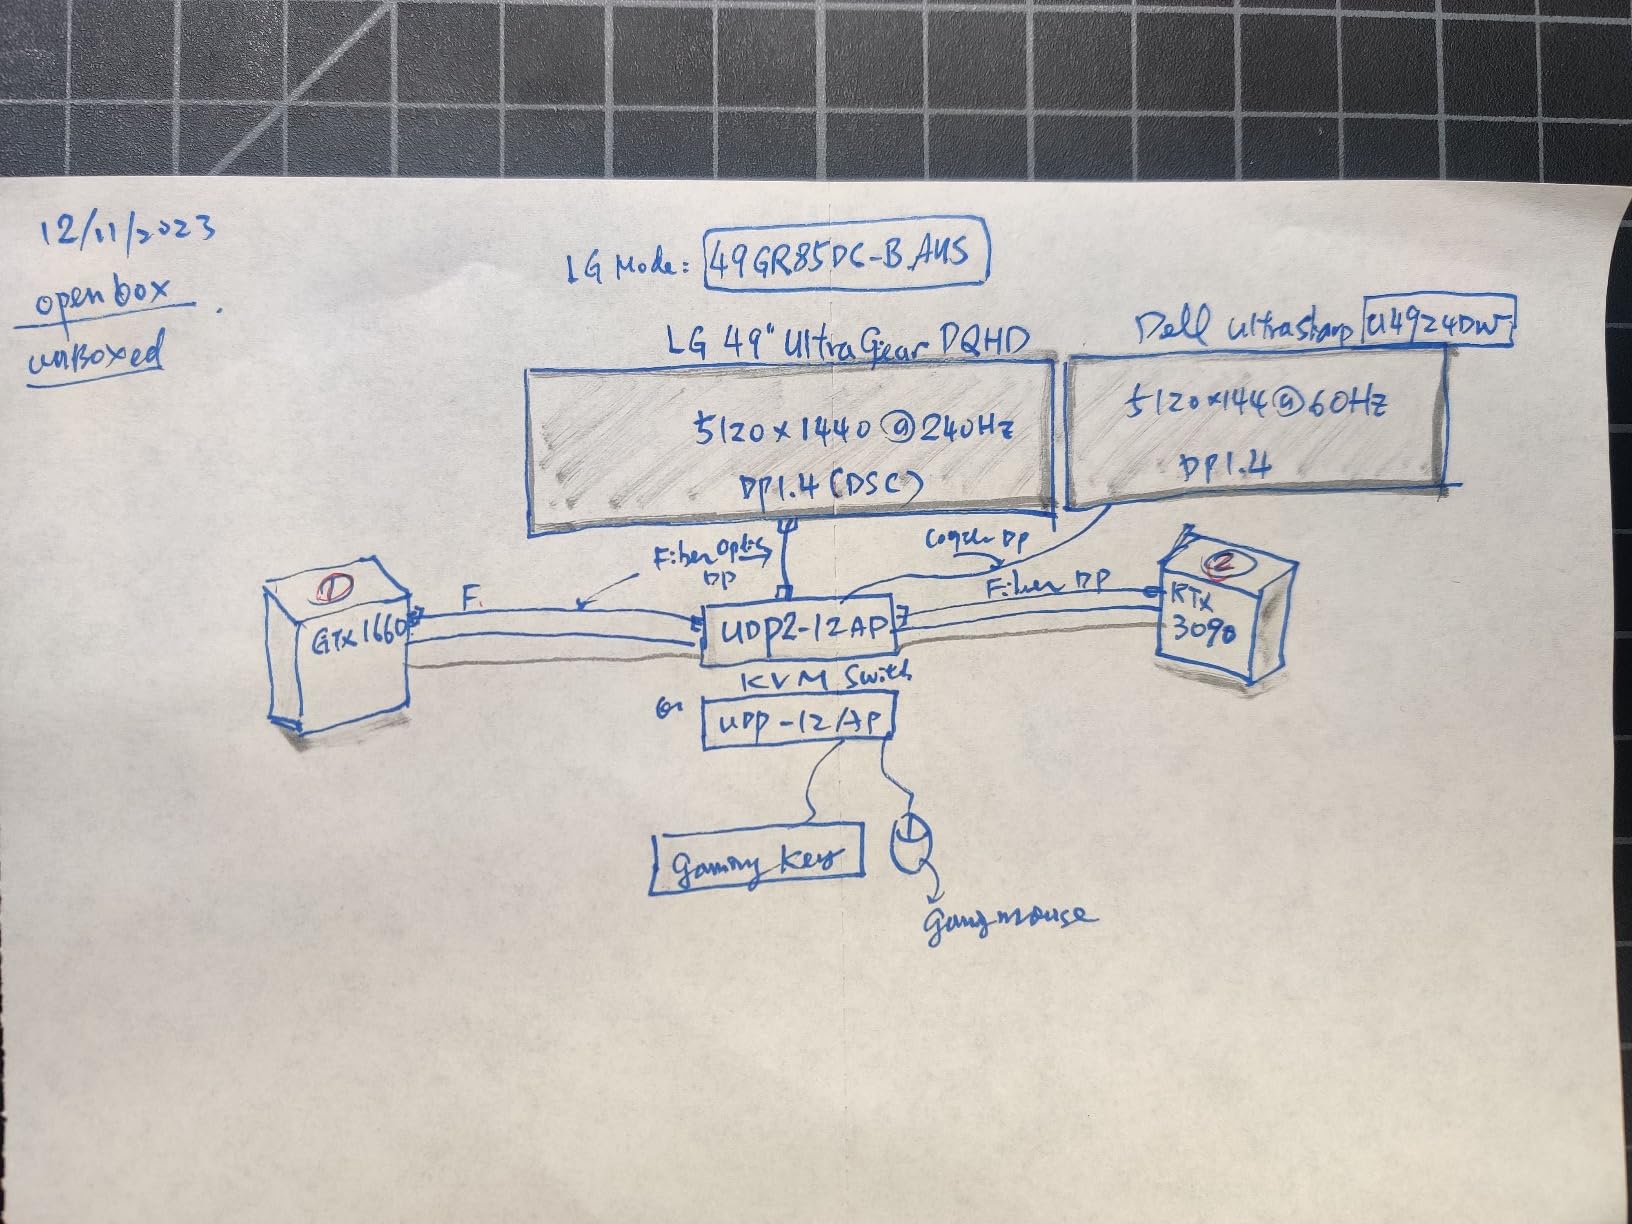 12/11/2023
open box
unBoxed
LG Mode: 49GR85DC-B.AUS
LG 49" UltraGear DQHD
Dell UltraSharp U4924DW
5120x1440@240Hz
DP1.4 (DSC)
5120x144@60Hz
DP1.4
Fiber Optic
DP
DP
Fiber DP
F.
1
GTX1660
UDP2-12AP
2
RTX
3090
KVM Switch
or
UDP-12AP
Gaming Key
mouse